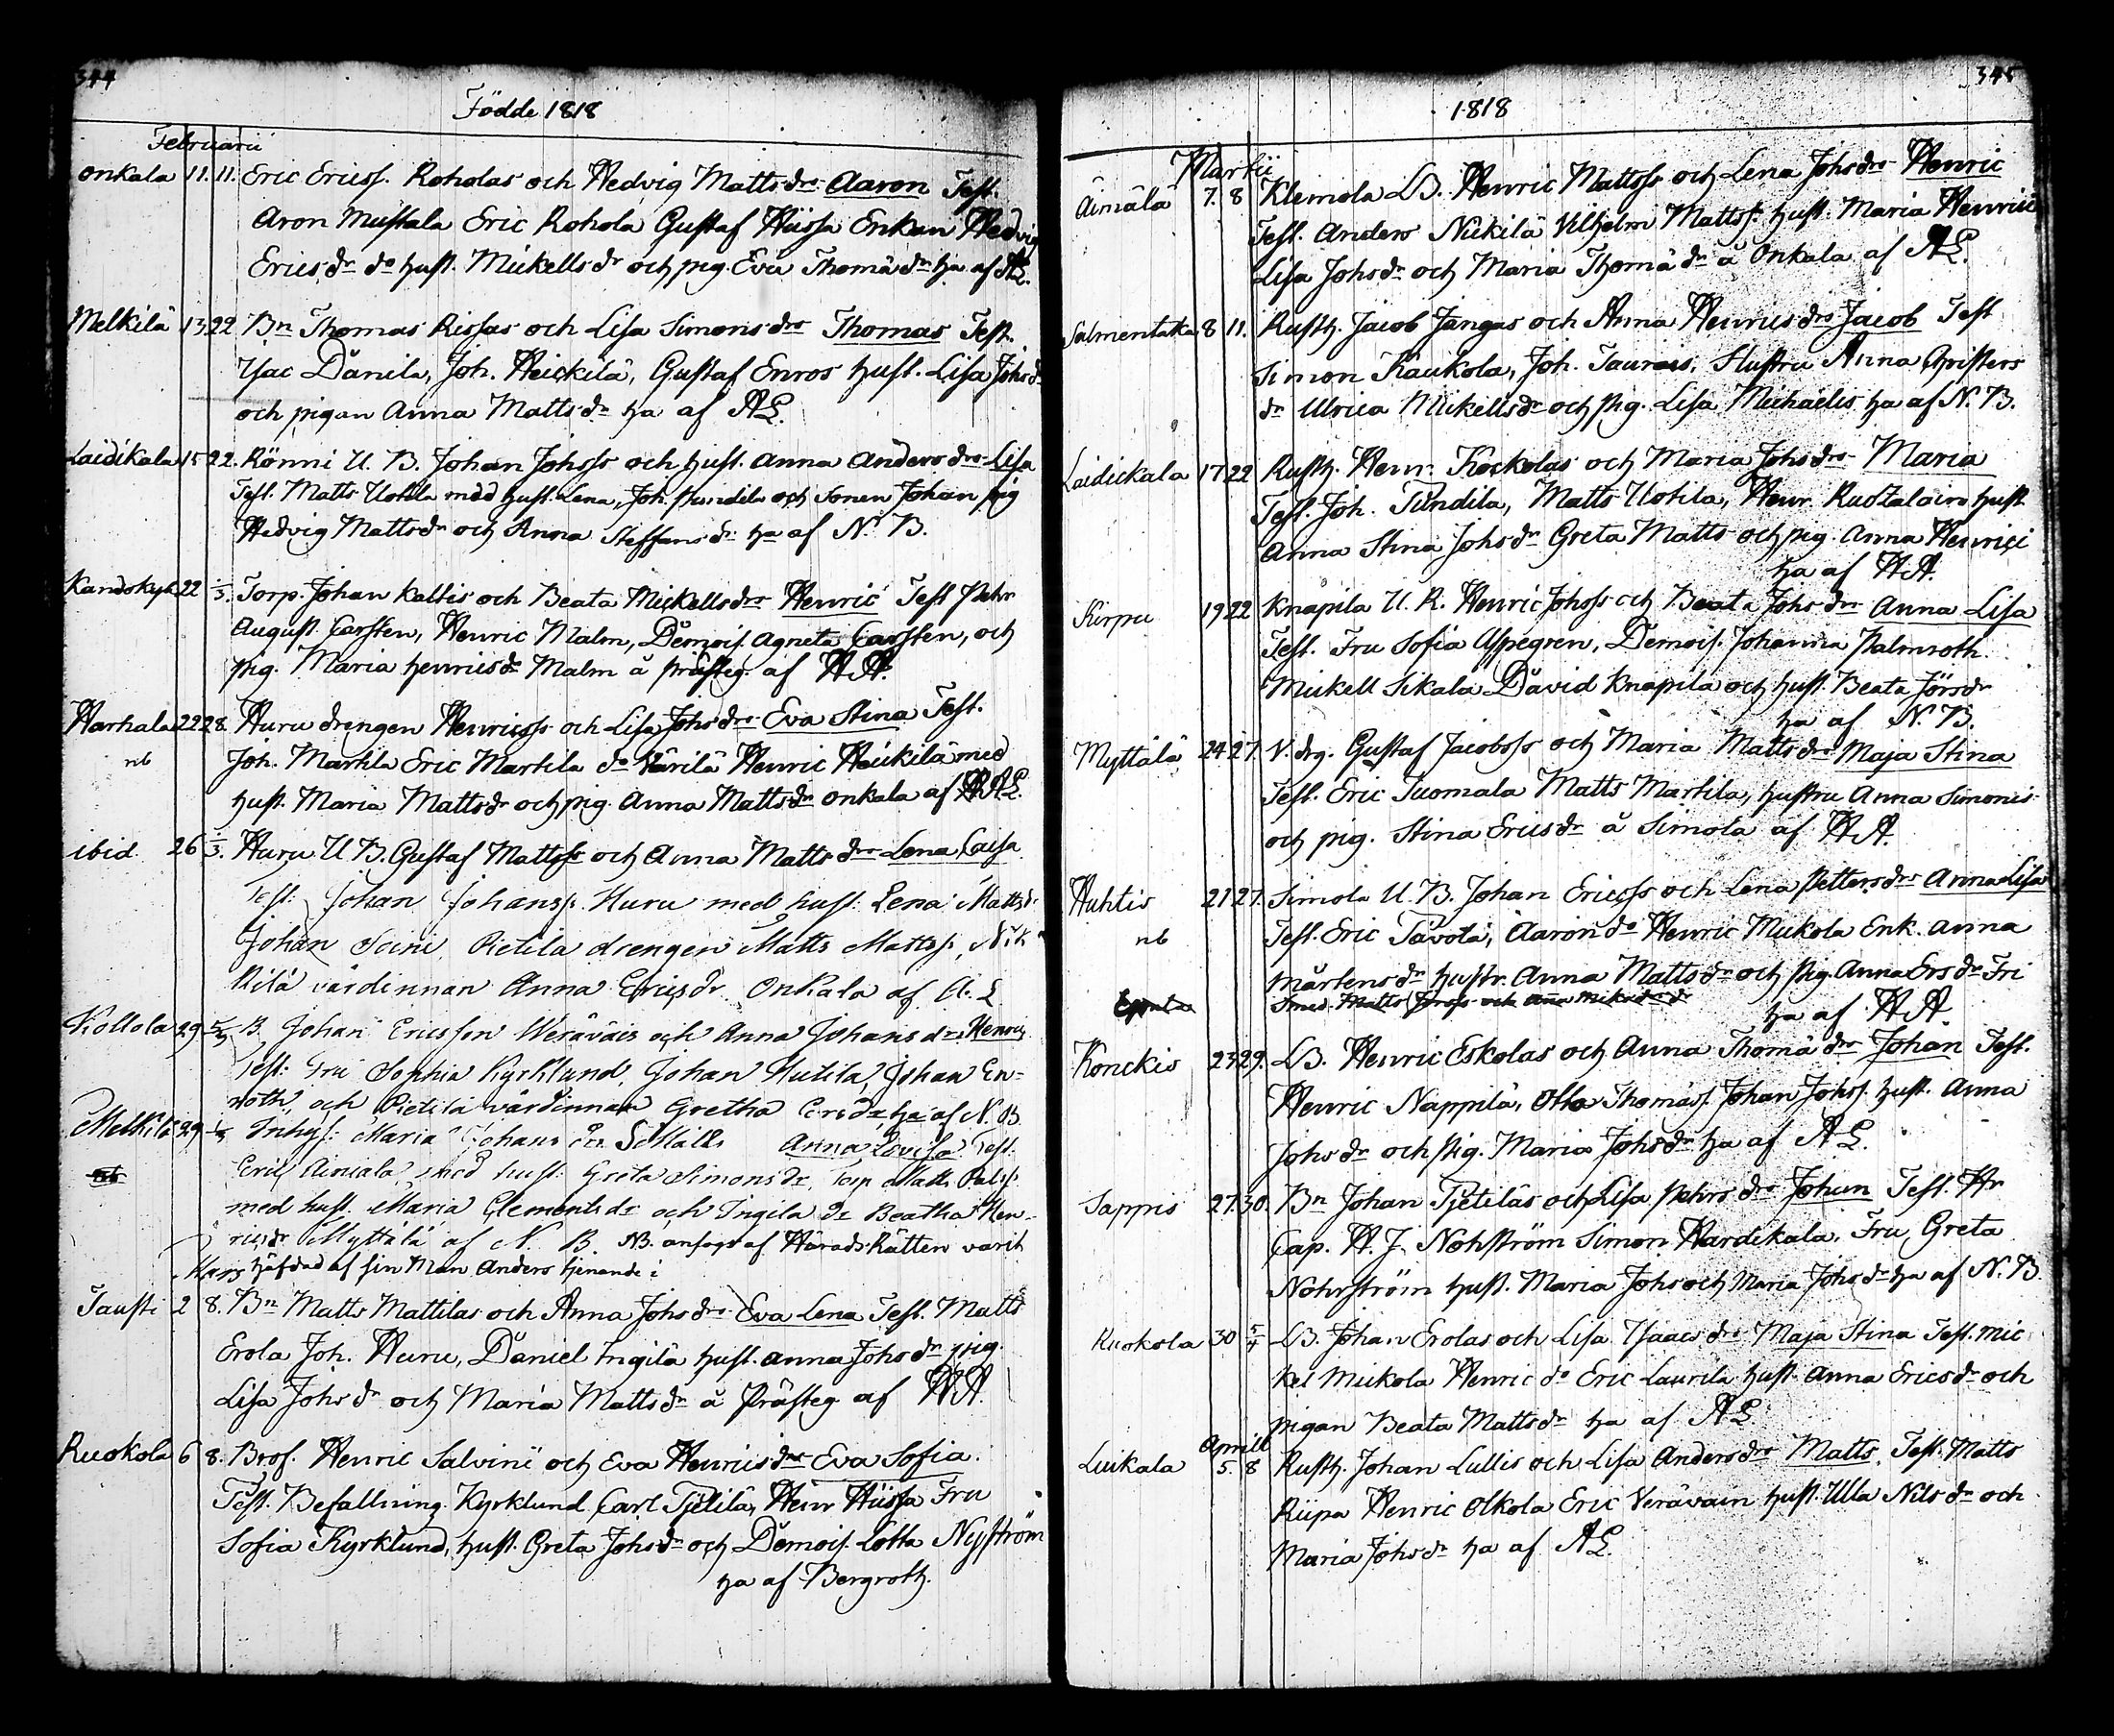 344
Födde 1818
Februarii
Onkala 11. 11. Eric Ericss. Roholas och Hedvig Matts drs Aaron Test.
Aron Mustala Eric Rohola Gustaf Hüssa Enkan Hedvig
Erics dr do hust. Mickells dr och pig. Eva Thomä dr ha af AL.
Melkilä 13 22 Bn Thomas Rissas och Lisa Simons drs Thomas Test.
Isac Danila, Joh. Heickilä, Gustaf Enros hust. Lisa Johs dr
och pigan Anna Matts dr ha af AL.
Laidikala 15 22. Rönni U. B. Johan Johsss och hust. Anna Anders drs Lisa
Test. Matts Uotila med hust. Lena, Joh. Pundila och Sonen Johan pig
Hedvig Matts dr och Anna Steffans dr ha af N. B.
Kandokyl 22 1/3. Torp. Johan Kallis och Beata Mickells drs Henric Test Pehr
August Carsten, Henric Malm, Demois. Agneta Carsten, och
pig. Maria Henrics dr Malm å Prästeg. af HA.
Harhala 22 28. Huru drengen Henricss och Lisa Johs drs Eva Stina Test.
nb Joh. Martila Eric Martila do Värilä Henric Häickilä med
hust. Maria Matts dr och pig. Anna Matts dr Onkala af AL.
ibid. 26 1/3. Huru U. B. Gustaf Mattsss och Anna Matts drs Lena Caisa
Test: Johan Johanss. Huru med hust: Lena Mattsdr
Johan Soini, Pietila drengen Matts Mattss, Nik
kilä värdinnan Anna Ericsdr Onkala af A. L
Kollola 29 5/3 B. Johan Ericsson Weräväis och Anna Johans drs Henric
Test: Fru Sophia Kyrklund, Johan Hutila, Johan En=
roth, och Pietilä värdinnan Gretha Ersdr, ha af N. B.
Melkilä 29 Inhys: Maria Johans dr Anna Lovisa Test:
nb Eric Äimälä, med hust: Greta Simonsdr, Torp Matts
med hust. Maria Clementsdr och Ingila dr Beatha Hen=
ricsdr Myttälä af N. B. NB. anfogs af Härads Rätten varit
häfdad af sin Man Anders tjenande i
Mars
Tausti 2 8. Bn Matts Mattilas och Anna Johs drs Eva Lena Test. Matts
Erola Joh. Huru, Daniel Ingilä hust. Anna Johs dr pig.
Lisa Johs dr och Maria Matts dr å Prästeg af HA.
Ruokola 6 8. Brof. Henric Salvini och Eva Henrics drs Eva Sofia.
Test. Befallning. Kyrklund Carl Tjetilä, Henr Hüssa Fru
Sofia Kyrklund, hust. Greta Johs dr och Demois. Lotta Nyström
ha af Bergroth.
345
1818
Martii
Äimälä 7. 8 Klemola LB. Henric Mattsss och Lena Johs drs Henric
Test. Anders Nickilä Vilhelm Mattss. hust. Maria Henrici
Lisa Johs dr och Maria Thomä dr å Onkala af AL.
Salmentaka 8 11. Rusth. Jacob Jangas och Anna Henrics drs Jacob Test
Simon Kaukola, Joh. Taurais, Hustru Anna Christers
dr Ulrica Mickells dr och Pig. Lisa Michaelis ha af N. B.
Laidickala 17 22 Rusth. Henr. Kockolas och Maria Johs drs Maria
Test. Joh. Pundila, Matts Uotila, Henr. Ruotalairo hust
Anna Stina Johs dr Greta Matts och pig. Anna Henrici
ha af HA.
Kirpu 19 22 Knäpilä U. R. Henric Johsss och Beata Johs drs Anna Lisa
Test. Fru Sofia Aspegren, Demois. Johanna Palmroth
Mickell Sikala David Knäpilä och hust. Beata Jörs dr
ha af N. B.
Myttälä 24 27. V. drg. Gustaf Jacobsss och Maria Matts drs Maja Stina
Test. Eric Tuomala Matts Martila, hustru Anna Simonis
och pig. Stina Erics dr å Simola af HA.
Huhtis 21 27. Simola U. B. Johan Ericsss och Lena Petters drs Anna Lisa
nb Test. Eric Tavola, Aaron do Henric Mickola Enk. Anna
Mårtens dr hustr. Anna Matts dr och pig. Anna Ers dr Fri
ha af HA.
Konckis 23 29. LB. Henric Eskolas och Anna Thomä drs Johan Test.
Henric Nappilä, Otto Thomäs. Johan Johss. hust. Anna
Johs dr och Pig. Maria Johs dr ha af AL.
Sappis 27. 30. Bn Johan Tjetiläs och Lisa Pehrs drs Johan Test. Hr
Cap. H. J. Nohrström Simon Hardikala, Fru, Greta
Nohrström hust. Maria Johs och Maria Johs dr ha af N. B.
Ruokola 30 5/4 LB. Johan Erolas och Lisa Isaacs drs Maja Stina Test. Mic
kel Mickola Henric do Eric Laurila hust. Anna Erics dr och
pigan Beata Matts dr ha af AL
Aprill
Luikala 5. 8 Rusth. Johan Lullis och Lisa Anders drs Matts. Test. Matts
Riipa Henric Olkola Eric Verävain hust. Ulla Nils dr och
Maria Johs dr ha af AL.